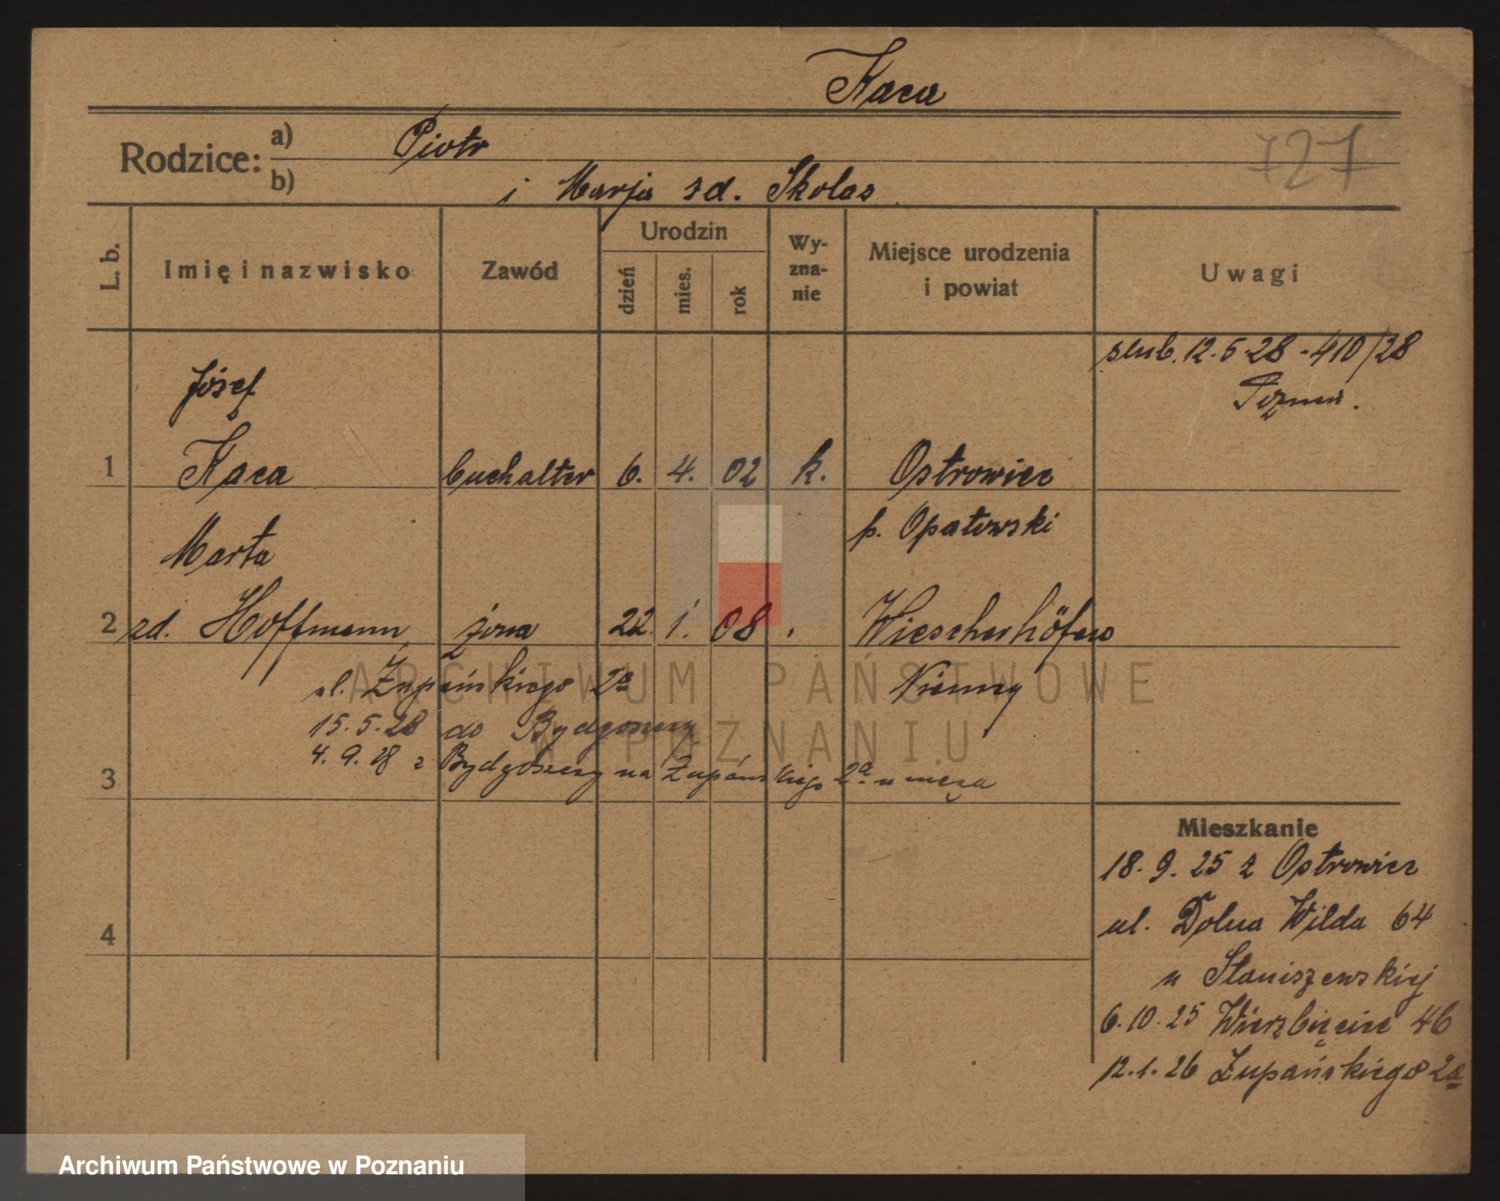 Kaca
Rodzice:
a) Piotr
b) i Marja zd. Skolas
727
L. b.
Imię i nazwisko
Zawód
Urodzin
dzień
mies.
rok
Wy-
zna-
nie
Miejsce urodzenia
i powiat
Uwagi
ślub. 12.5.28 - 410/28
Poznań.
Józef
1 Kaca buchalter 6. 4. 02 k. Ostrowiec
p. Opatowski
Marta
2 zd. Hoffmann żona 22. 1. 08 Wiescherhöfen
Niemcy
ul. Żupańskiego 2a
15.5.28 do Bydgoszczy
4.9.28 z Bydgoszczy na Żupańskiego 2a u męża
3
4
Mieszkanie
18.9.25 z Ostrowiec
ul. Dolna Wilda 64
u Staniszewskiej
6.10.25 Wierzbięcice 46
12.1.26 Żupańskiego 2a
ARCHIWUM PAŃSTWOWE
W POZNANIU
Archiwum Państwowe w Poznaniu